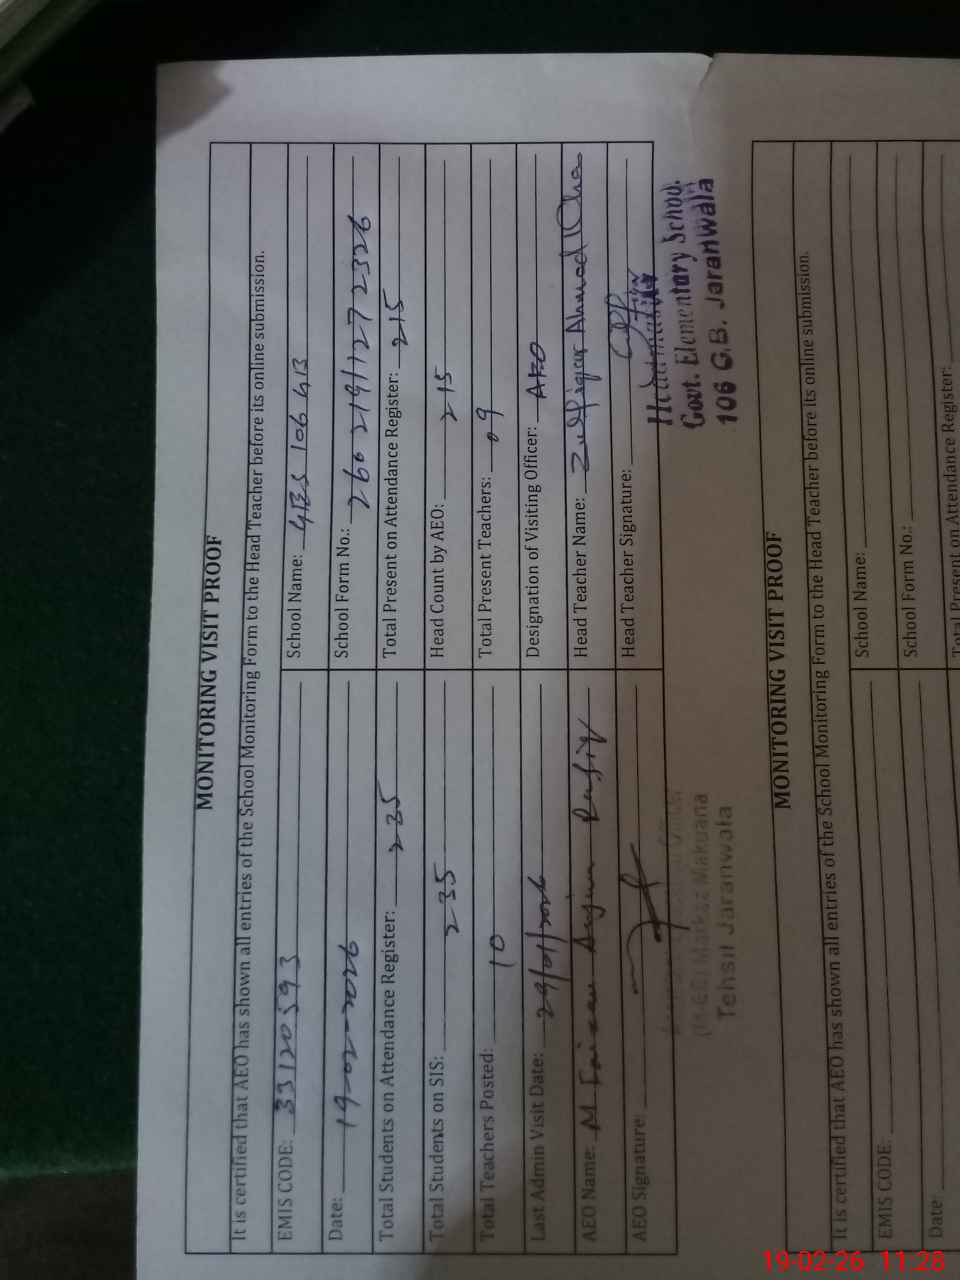 MONITORING VISIT PROOF
It is certified that AEO has shown all entries of the School Monitoring Form to the Head Teacher before its online submission.
EMIS CODE: 33120593 School Name: GES 106 GB
Date: 19-02-2026 School Form No.: 2602191127 2326
Total Students on Attendance Register: 235 Total Present on Attendance Register: 215
Total Students on SIS: 235 Head Count by AEO: 215
Total Teachers Posted: 10 Total Present Teachers: 09
Last Admin Visit Date: 29/01/2026 Designation of Visiting Officer: AEO
AEO Name: M Faizan Anjum Rafiq Head Teacher Name: Zulfiqar Ahmad Khan
AEO Signature: Head Teacher Signature:
Headmaster
Govt. Elementary School.
106 G.B. Jaranwala
(M-EE) Markaz Makuana
Tehsil Jaranwala
MONITORING VISIT PROOF
It is certified that AEO has shown all entries of the School Monitoring Form to the Head Teacher before its online submission.
EMIS CODE: School Name:
Date: School Form No.:
Total Present on Attendance Register:
19-02-26 11:28